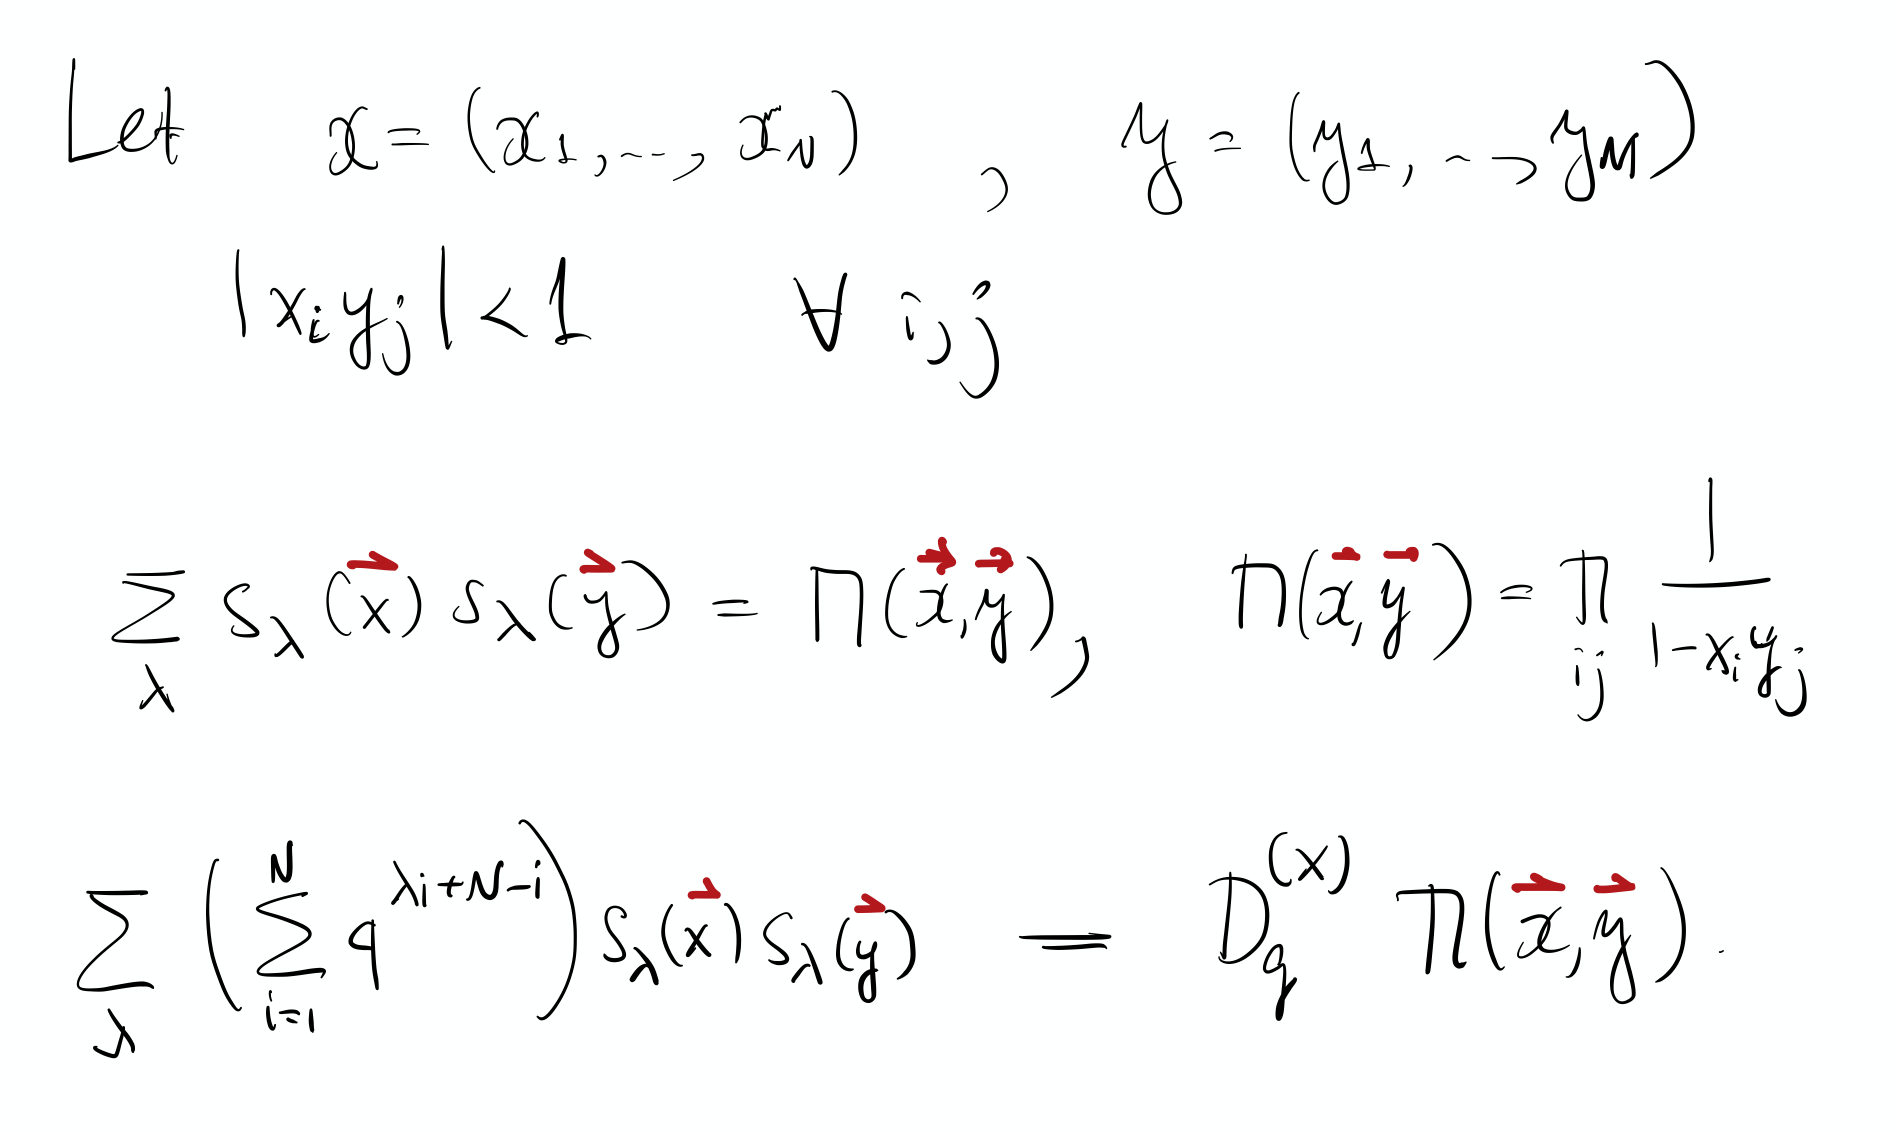 Let x = (x₁, ..., x_N) , y = (y₁, ..., y_M)
|x_i y_j| < 1 ∀ i, j
∑_λ s_λ(x⃗) s_λ(y⃗) = Π(x⃗, y⃗), Π(x⃗, y⃗) = Π_{ij} 1/(1 - x_i y_j)
∑_λ (∑_{i=1}^{N} q^{λ_i + N - i}) s_λ(x⃗) s_λ(y⃗) = D_q^{(x)} Π(x⃗, y⃗).